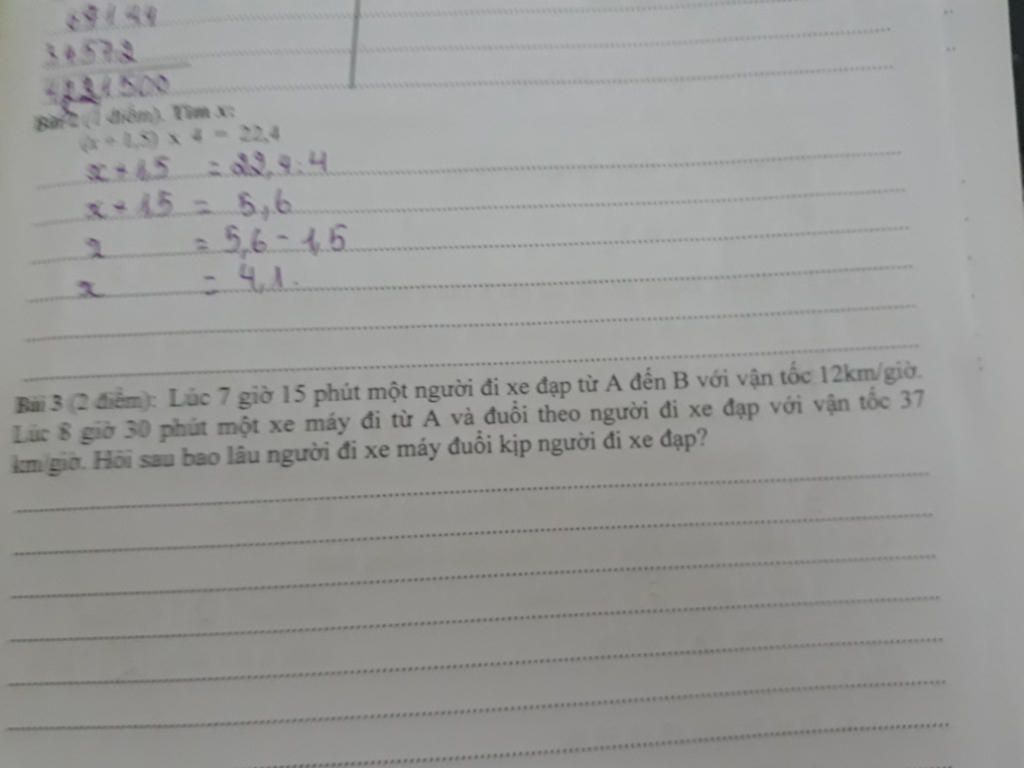 34572
4221500
Bài 2 (1 điểm). Tìm x:
(x + 1,5) x 4 = 22,4
x + 1,5 = 22,4 : 4
x + 1,5 = 5,6
x = 5,6 - 1,5
x = 4,1.
Bài 3 (2 điểm): Lúc 7 giờ 15 phút một người đi xe đạp từ A đến B với vận tốc 12km/giờ.
Lúc 8 giờ 30 phút một xe máy đi từ A và đuổi theo người đi xe đạp với vận tốc 37
km/giờ. Hỏi sau bao lâu người đi xe máy đuổi kịp người đi xe đạp?